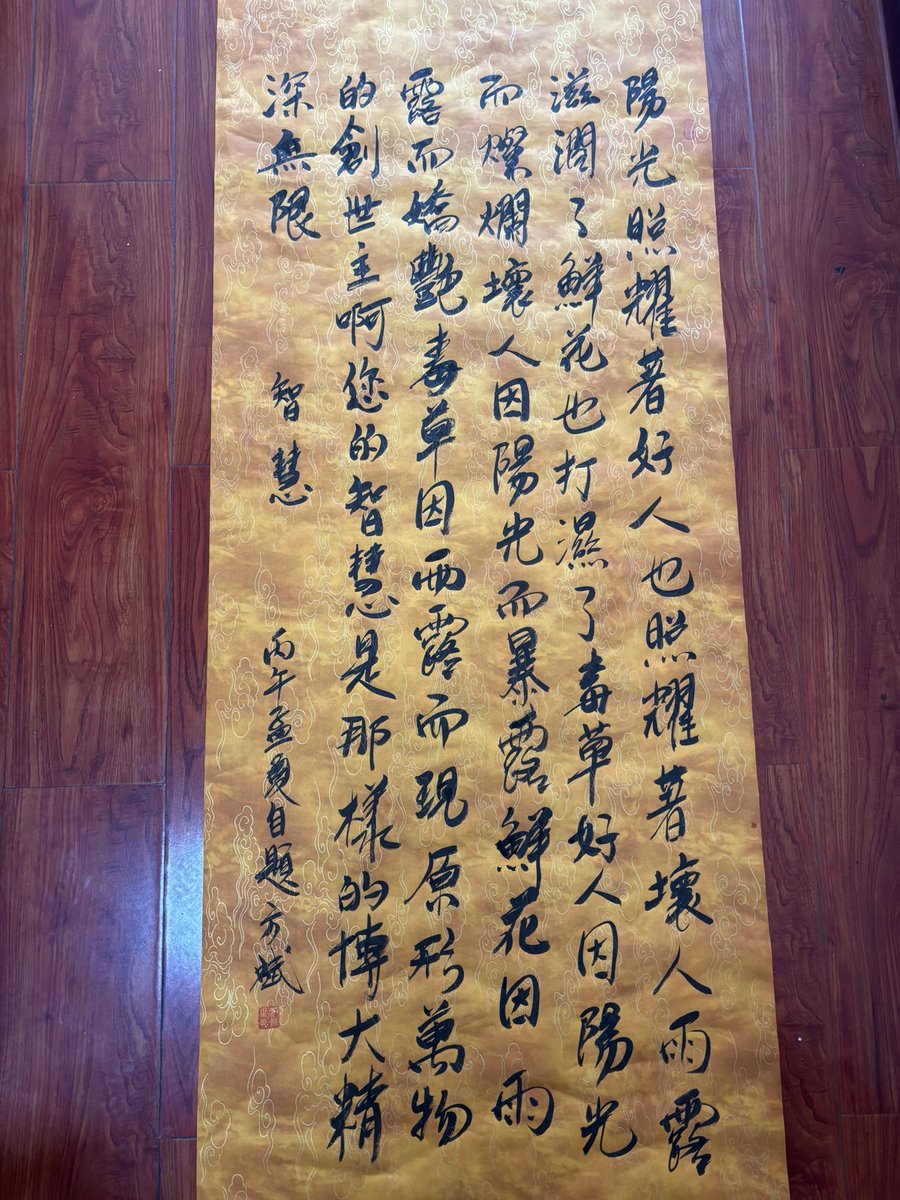 陽光照耀著好人也照耀著壞人雨露
滋潤了鮮花也打濕了毒草好人因陽光
而燦爛壞人因陽光而暴露鮮花因雨
露而嬌艷毒草因雨露而現原形萬物
的創世主啊您的智慧是那樣的博大精
深無限
智慧
丙午孟夏自題方斌